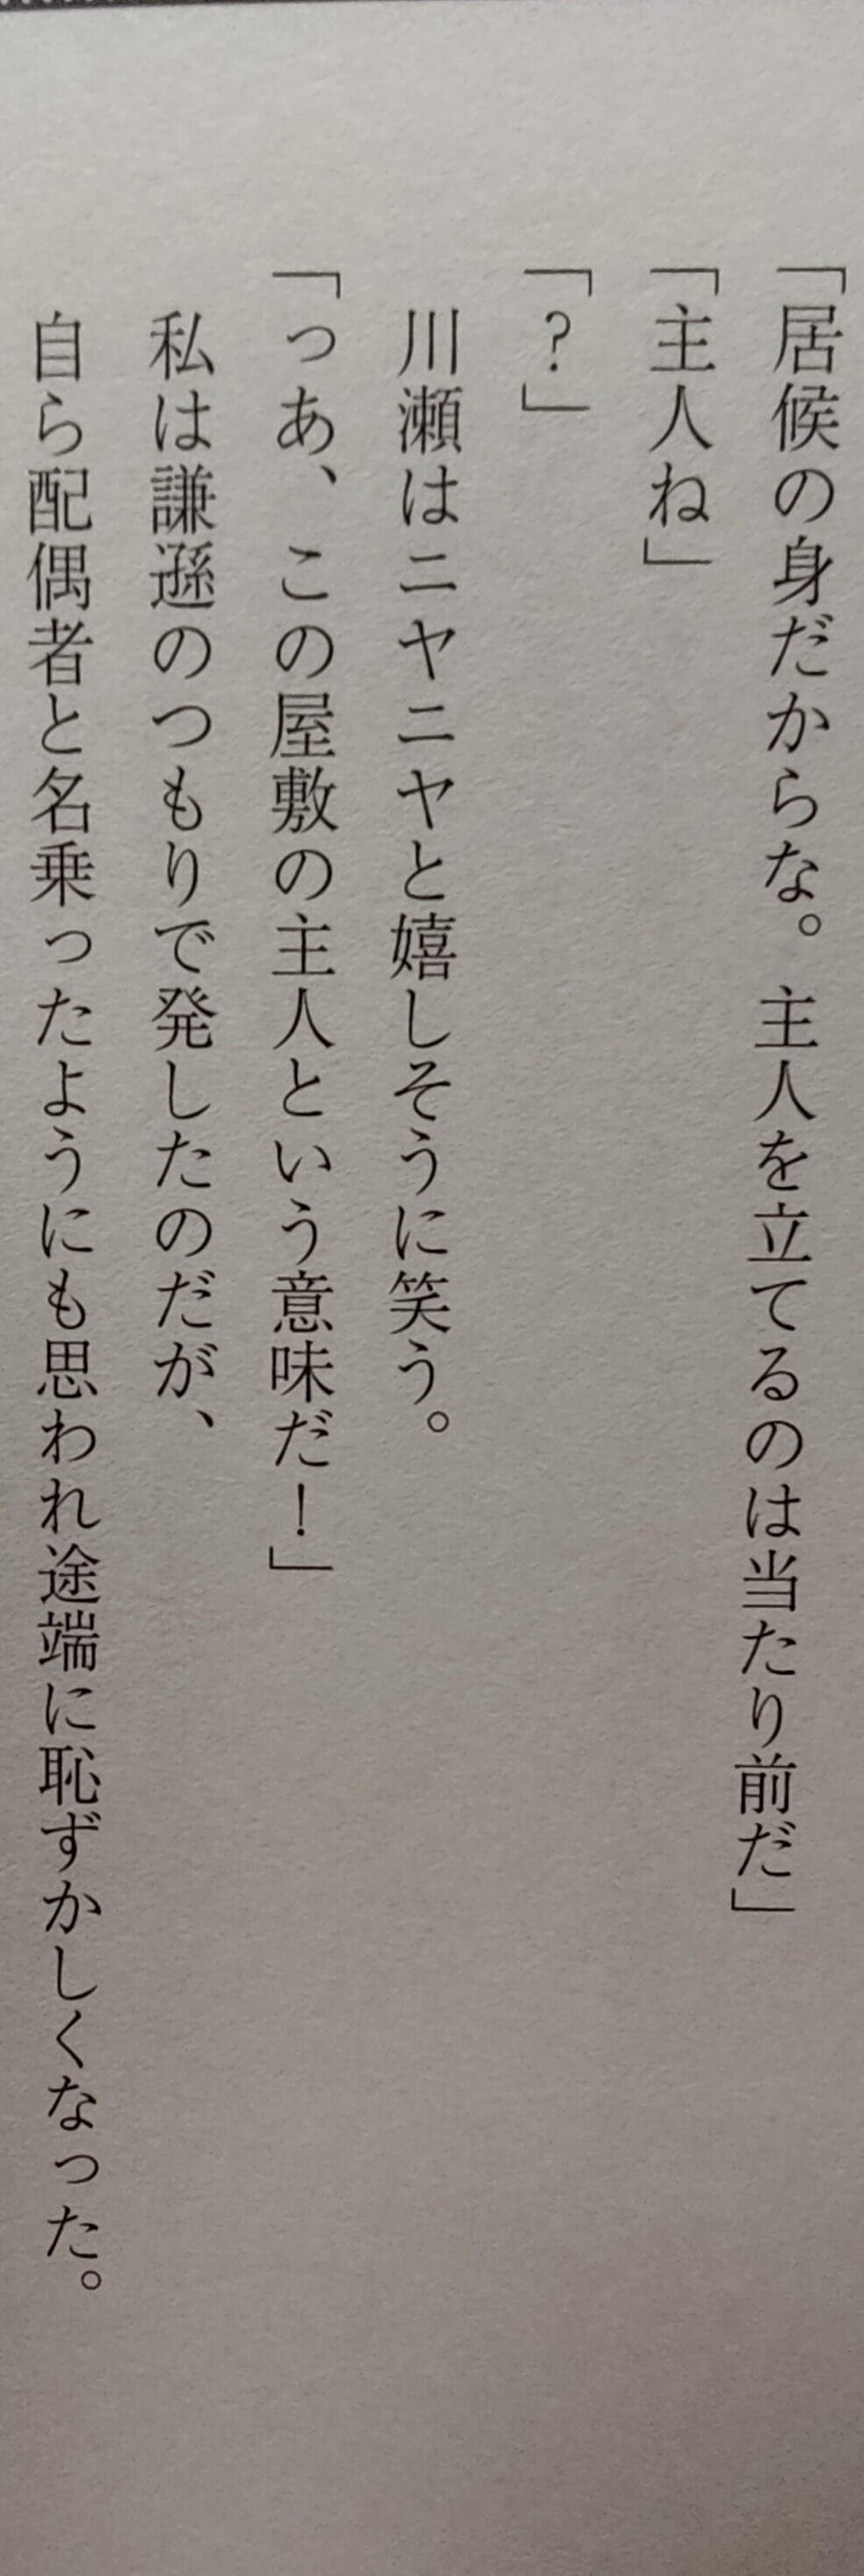 「居候の身だからな。主人を立てるのは当たり前だ」
「主人ね」
「?」
川瀬はニヤニヤと嬉しそうに笑う。
「っあ、この屋敷の主人という意味だ!」
私は謙遜のつもりで発したのだが、
自ら配偶者と名乗ったようにも思われ途端に恥ずかしくなった。